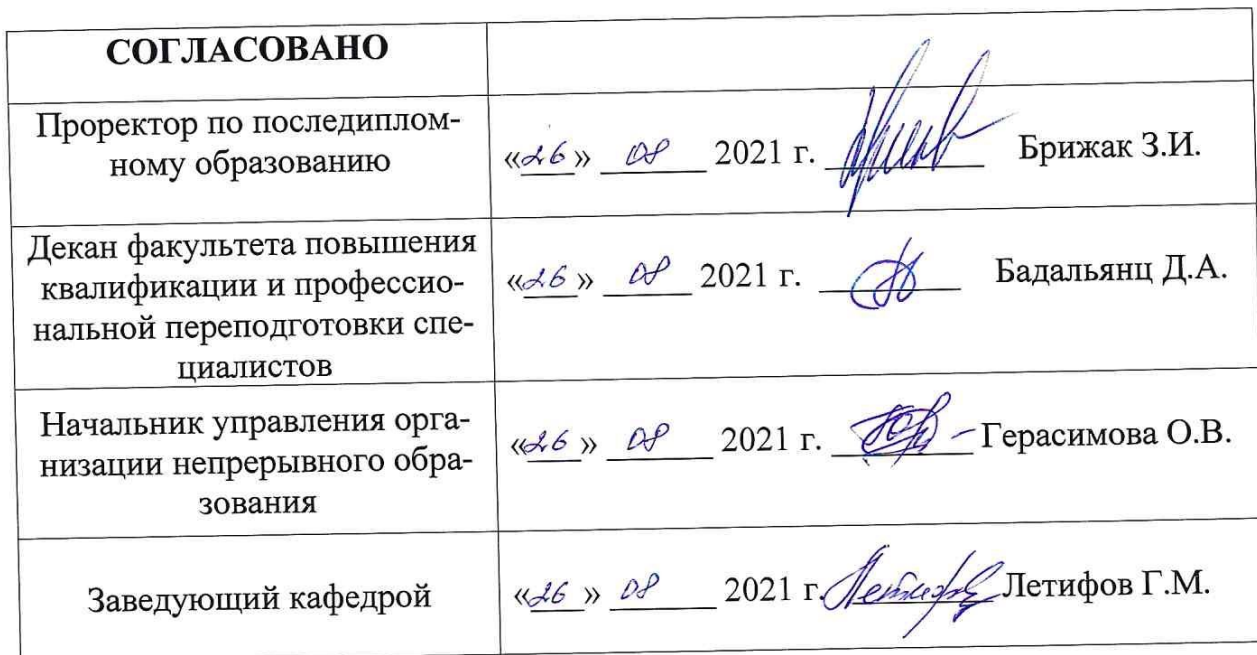 СОГЛАСОВАНО
Проректор по последиплом-
ному образованию
«26» 08 2021 г. Брижак З.И.
Декан факультета повышения
квалификации и профессио-
нальной переподготовки спе-
циалистов
«26» 08 2021 г. Бадальянц Д.А.
Начальник управления орга-
низации непрерывного обра-
зования
«26» 08 2021 г. Герасимова О.В.
Заведующий кафедрой
«26» 08 2021 г. Летифов Г.М.